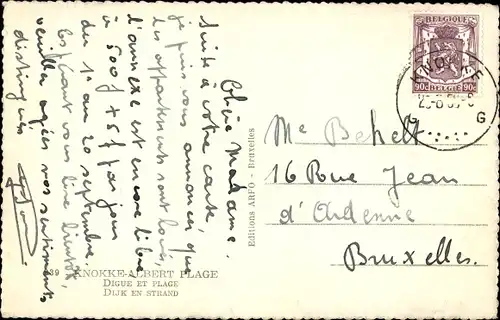 Chère Madame.
Suite à votre carte,
je puis vous annoncer, que
les appartements sont loués,
l'annexe est encore libre
à 500f + 5f par jour
du 1er au 20 septembre.
Espérant vous lire bientôt,
veuillez agréer mes sentiments
distingués
29 KNOKKE-ALBERT PLAGE
DIGUE ET PLAGE
DIJK EN STRAND
Editions ARFO - Bruxelles
BELGIQUE
90c 90c
BELGIË
G
Me Behelt
16 Rue Jean
d'Ardenne
Bruxelles.